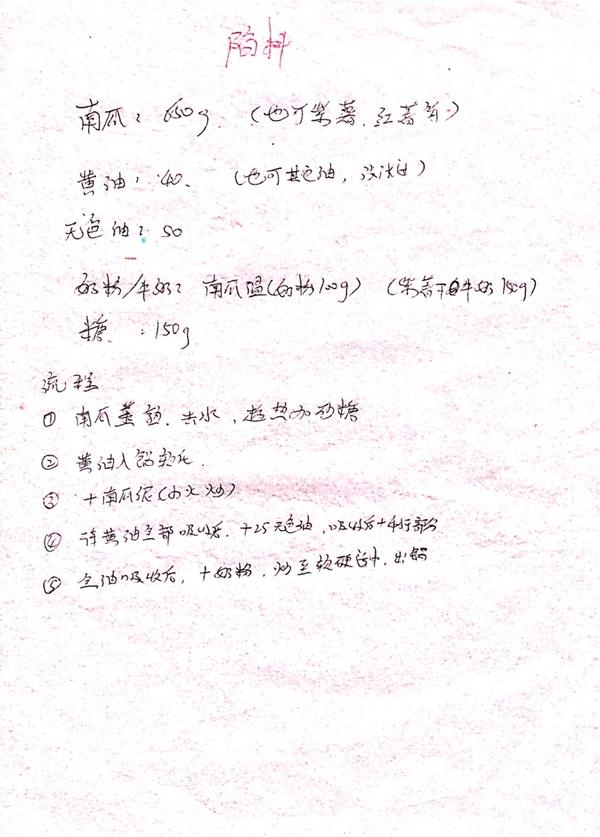 陷料
南瓜：650g （也可紫薯、红薯等）
黄油：40、（也可其它油，
无色油：50
奶粉/牛奶：南瓜 （奶粉100g）（紫薯 牛奶150g）
糖：150g
流程
① 南瓜蒸 、去水，趁热加砂糖
② 黄油入锅
③ +南瓜泥（小火炒）
④ 待黄油全部吸收后，+25无色油，吸收后+ 部分
⑤ 全油吸收后，+奶粉，炒至软硬 ，出锅